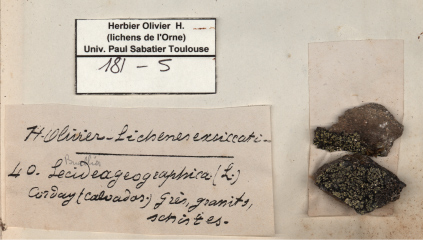 Herbier Olivier H.
(lichens de l'Orne)
Univ. Paul Sabatier Toulouse
181 - 5
H. Olivier - Lichenes exsiccati -
40. Lecidea geographica (L.)
Corday (Calvados) Grès, granits,
schistes.